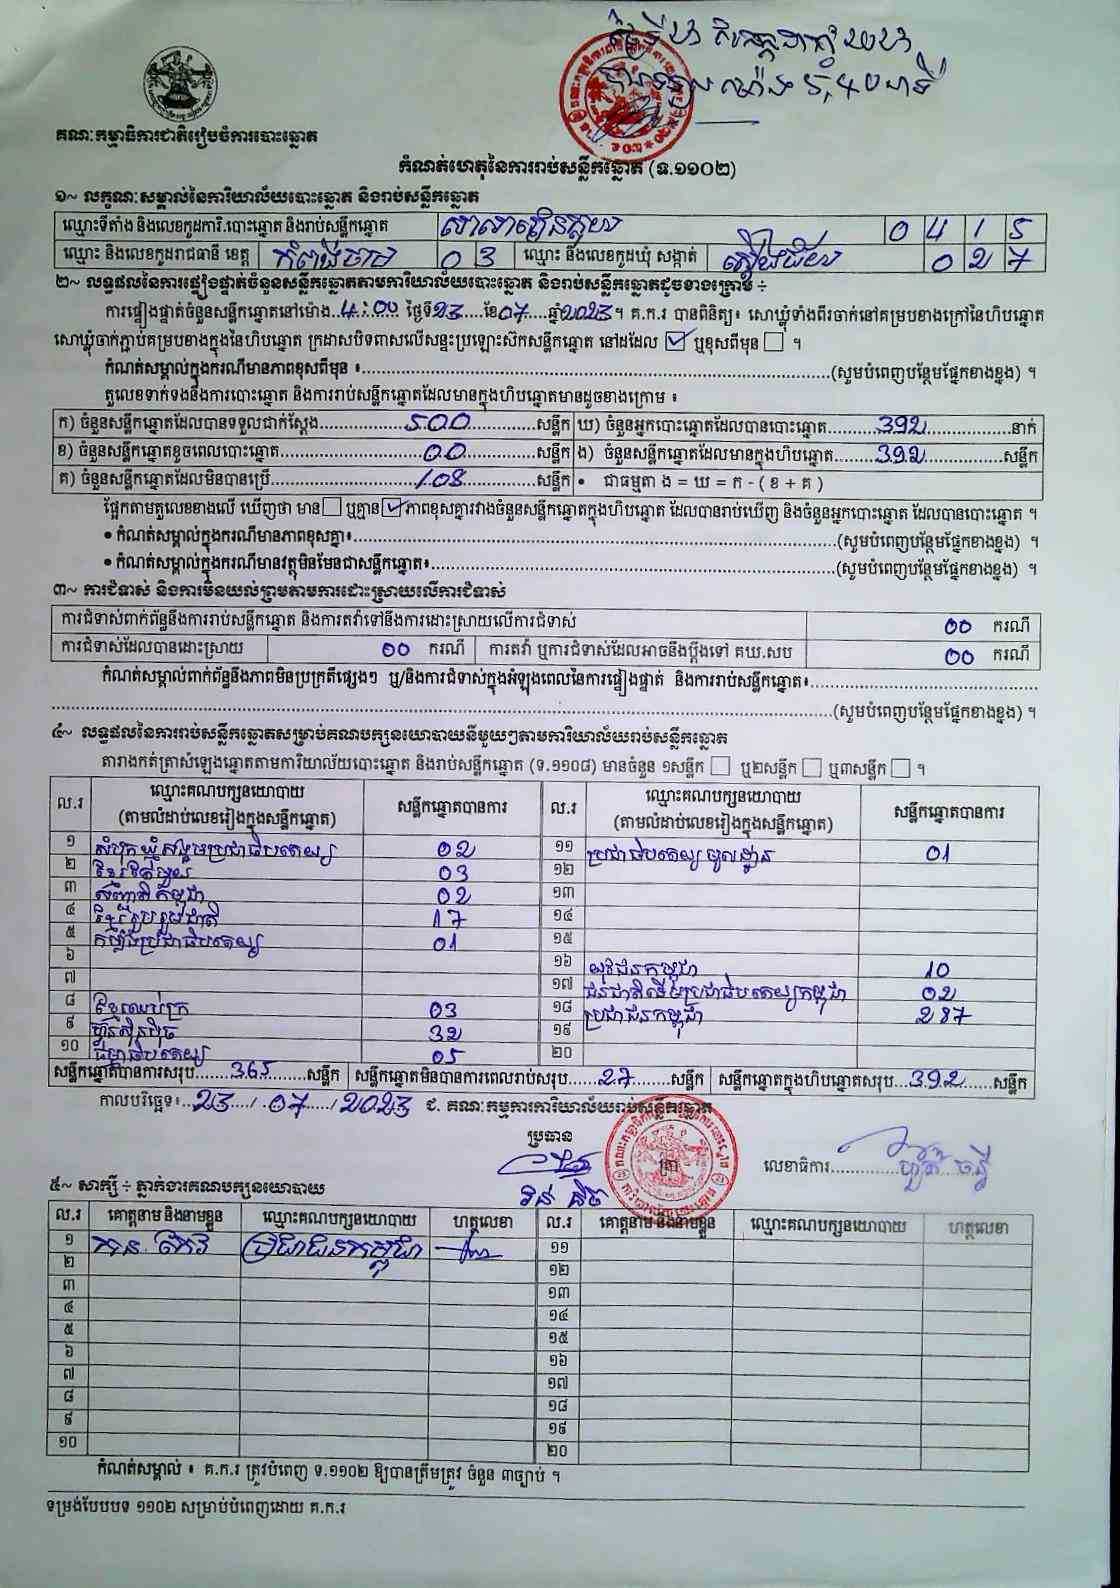 គណៈកម្មាធិការជាតិរៀបចំការបោះឆ្នោត
កំណត់ហេតុនៃការរាប់សន្លឹកឆ្នោត (ទ.១១០២)
១~ លក្ខណៈសម្គាល់នៃការិយាល័យបោះឆ្នោត និងរាប់សន្លឹកឆ្នោត
ឈ្មោះទីតាំង និងលេខកូដការិ.បោះឆ្នោត និងរាប់សន្លឹកឆ្នោត 0 4 1 5
ឈ្មោះ និងលេខកូដរាជធានី ខេត្ត កំពង់ចាម 0 3 ឈ្មោះ និងលេខកូដឃុំ សង្កាត់ 0 2 7
២~ លទ្ធផលនៃការផ្ទៀងផ្ទាត់ចំនួនសន្លឹកឆ្នោតតាមការិយាល័យបោះឆ្នោត និងរាប់សន្លឹកឆ្នោតដូចខាងក្រោម ÷
ការផ្ទៀងផ្ទាត់ចំនួនសន្លឹកឆ្នោតនៅម៉ោង 4:00 ថ្ងៃទី 23 ខែ 07 ឆ្នាំ 2023 ។ គ.ក.រ បានពិនិត្យ៖ សោឃ្លុំទាំងពីរចាក់នៅគម្របខាងក្រៅនៃហិបឆ្នោត
សោឃ្លុំចាក់ភ្ជាប់គម្របខាងក្នុងនៃហិបឆ្នោត ក្រដាសបិទពាសលើសន្ទះប្រឡោះស៊កសន្លឹកឆ្នោត នៅដដែល ☑ ឬខុសពីមុន ☐ ។
កំណត់សម្គាល់ក្នុងករណីមានភាពខុសពីមុន ៖ (សូមបំពេញបន្ថែមផ្នែកខាងខ្នង) ។
តួលេខទាក់ទងនឹងការបោះឆ្នោត និងការរាប់សន្លឹកឆ្នោតដែលមានក្នុងហិបឆ្នោតមានដូចខាងក្រោម ៖
ក) ចំនួនសន្លឹកឆ្នោតដែលបានទទួលជាក់ស្តែង 500 សន្លឹក ឃ) ចំនួនអ្នកបោះឆ្នោតដែលបានបោះឆ្នោត 392 នាក់
ខ) ចំនួនសន្លឹកឆ្នោតខូចពេលបោះឆ្នោត 00 សន្លឹក ង) ចំនួនសន្លឹកឆ្នោតដែលមានក្នុងហិបឆ្នោត 392 សន្លឹក
គ) ចំនួនសន្លឹកឆ្នោតដែលមិនបានប្រើ 108 សន្លឹក • ជាធម្មតា ង = ឃ = ក - ( ខ + គ )
ផ្អែកតាមតួលេខខាងលើ ឃើញថា មាន ☐ ឬគ្មាន ☑ ភាពខុសគ្នារវាងចំនួនសន្លឹកឆ្នោតក្នុងហិបឆ្នោត ដែលបានរាប់ឃើញ និងចំនួនអ្នកបោះឆ្នោត ដែលបានបោះឆ្នោត ។
• កំណត់សម្គាល់ក្នុងករណីមានភាពខុសគ្នា៖ (សូមបំពេញបន្ថែមផ្នែកខាងខ្នង) ។
• កំណត់សម្គាល់ក្នុងករណីមានវត្ថុមិនមែនជាសន្លឹកឆ្នោត៖ (សូមបំពេញបន្ថែមផ្នែកខាងខ្នង) ។
៣~ ការជំទាស់ និងការមិនយល់ព្រមតាមការដោះស្រាយលើការជំទាស់
ការជំទាស់ពាក់ព័ន្ធនឹងការរាប់សន្លឹកឆ្នោត និងការតវ៉ាទៅនឹងការដោះស្រាយលើការជំទាស់ 00 ករណី
ការជំទាស់ដែលបានដោះស្រាយ 00 ករណី ការតវ៉ា ឬការជំទាស់ដែលអាចនឹងប្តឹងទៅ គឃ.សប 00 ករណី
កំណត់សម្គាល់ពាក់ព័ន្ធនឹងភាពមិនប្រក្រតីផ្សេងៗ ឬ/និងការជំទាស់ក្នុងអំឡុងពេលនៃការផ្ទៀងផ្ទាត់ និងការរាប់សន្លឹកឆ្នោត៖
(សូមបំពេញបន្ថែមផ្នែកខាងខ្នង) ។
៤~ លទ្ធផលនៃការរាប់សន្លឹកឆ្នោតសម្រាប់គណបក្សនយោបាយនីមួយៗតាមការិយាល័យរាប់សន្លឹកឆ្នោត
តារាងកត់ត្រាសំឡេងឆ្នោតតាមការិយាល័យបោះឆ្នោត និងរាប់សន្លឹកឆ្នោត (ទ.១១០៨) មានចំនួន ១សន្លឹក ☐ ឬ២សន្លឹក ☐ ឬ៣សន្លឹក ☐ ។
ល.រ ឈ្មោះគណបក្សនយោបាយ សន្លឹកឆ្នោតបានការ ល.រ ឈ្មោះគណបក្សនយោបាយ សន្លឹកឆ្នោតបានការ
(តាមលំដាប់លេខរៀងក្នុងសន្លឹកឆ្នោត) (តាមលំដាប់លេខរៀងក្នុងសន្លឹកឆ្នោត)
១ សំបុកឃ្មុំសង្គមប្រជាធិបតេយ្យ 02 ១១ ប្រជាធិបតេយ្យមូលដ្ឋាន 01
២ ខ្មែរតែមួយ 03 ១២
៣ សញ្ជាតិកម្ពុជា 02 ១៣
៤ ខ្មែររួបរួមជាតិ 17 ១៤
៥ កម្លាំងប្រជាធិបតេយ្យ 01 ១៥
៦ ១៦ យុវជនកម្ពុជា 10
៧ ១៧ ជនជាតិដើមប្រជាធិបតេយ្យកម្ពុជា 02
៨ ខ្មែរឈប់ក្រ 03 ១៨ ប្រជាជនកម្ពុជា 287
៩ ហ៊្វុនស៊ិនប៉ិច 32 ១៩
១០ ធម្មាធិបតេយ្យ 05 ២០
សន្លឹកឆ្នោតបានការសរុប 365 សន្លឹក សន្លឹកឆ្នោតមិនបានការពេលរាប់សរុប 27 សន្លឹក សន្លឹកឆ្នោតក្នុងហិបឆ្នោតសរុប 392 សន្លឹក
កាលបរិច្ឆេទ៖ 23 / 07 / 2023 ជ. គណៈកម្មការការិយាល័យរាប់សន្លឹកឆ្នោត
ប្រធាន
លេខាធិការ
៥~ សាក្សី ÷ ភ្នាក់ងារគណបក្សនយោបាយ
ល.រ គោត្តនាម និងនាមខ្លួន ឈ្មោះគណបក្សនយោបាយ ហត្ថលេខា ល.រ គោត្តនាម និងនាមខ្លួន ឈ្មោះគណបក្សនយោបាយ ហត្ថលេខា
១ ប្រជាជនកម្ពុជា ១១
២ ១២
៣ ១៣
៤ ១៤
៥ ១៥
៦ ១៦
៧ ១៧
៨ ១៨
៩ ១៩
១០ ២០
កំណត់សម្គាល់ ៖ គ.ក.រ ត្រូវបំពេញ ទ.១១០២ ឱ្យបានត្រឹមត្រូវ ចំនួន ៣ច្បាប់ ។
ទម្រង់បែបបទ ១១០២ សម្រាប់បំពេញដោយ គ.ក.រ